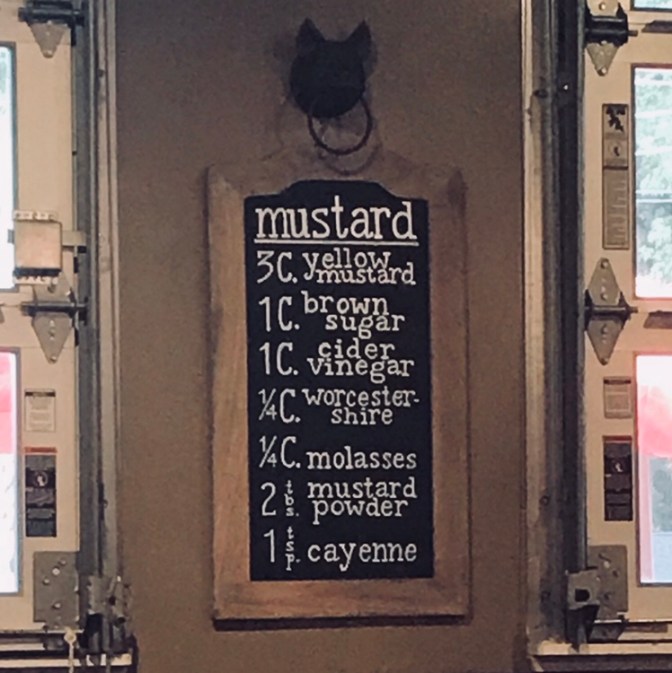 mustard
3C. yellow
mustard
1C. brown
sugar
1C. cider
vinegar
¼C. worcester-
shire
¼C. molasses
2 tbs. mustard
powder
1 tsp. cayenne